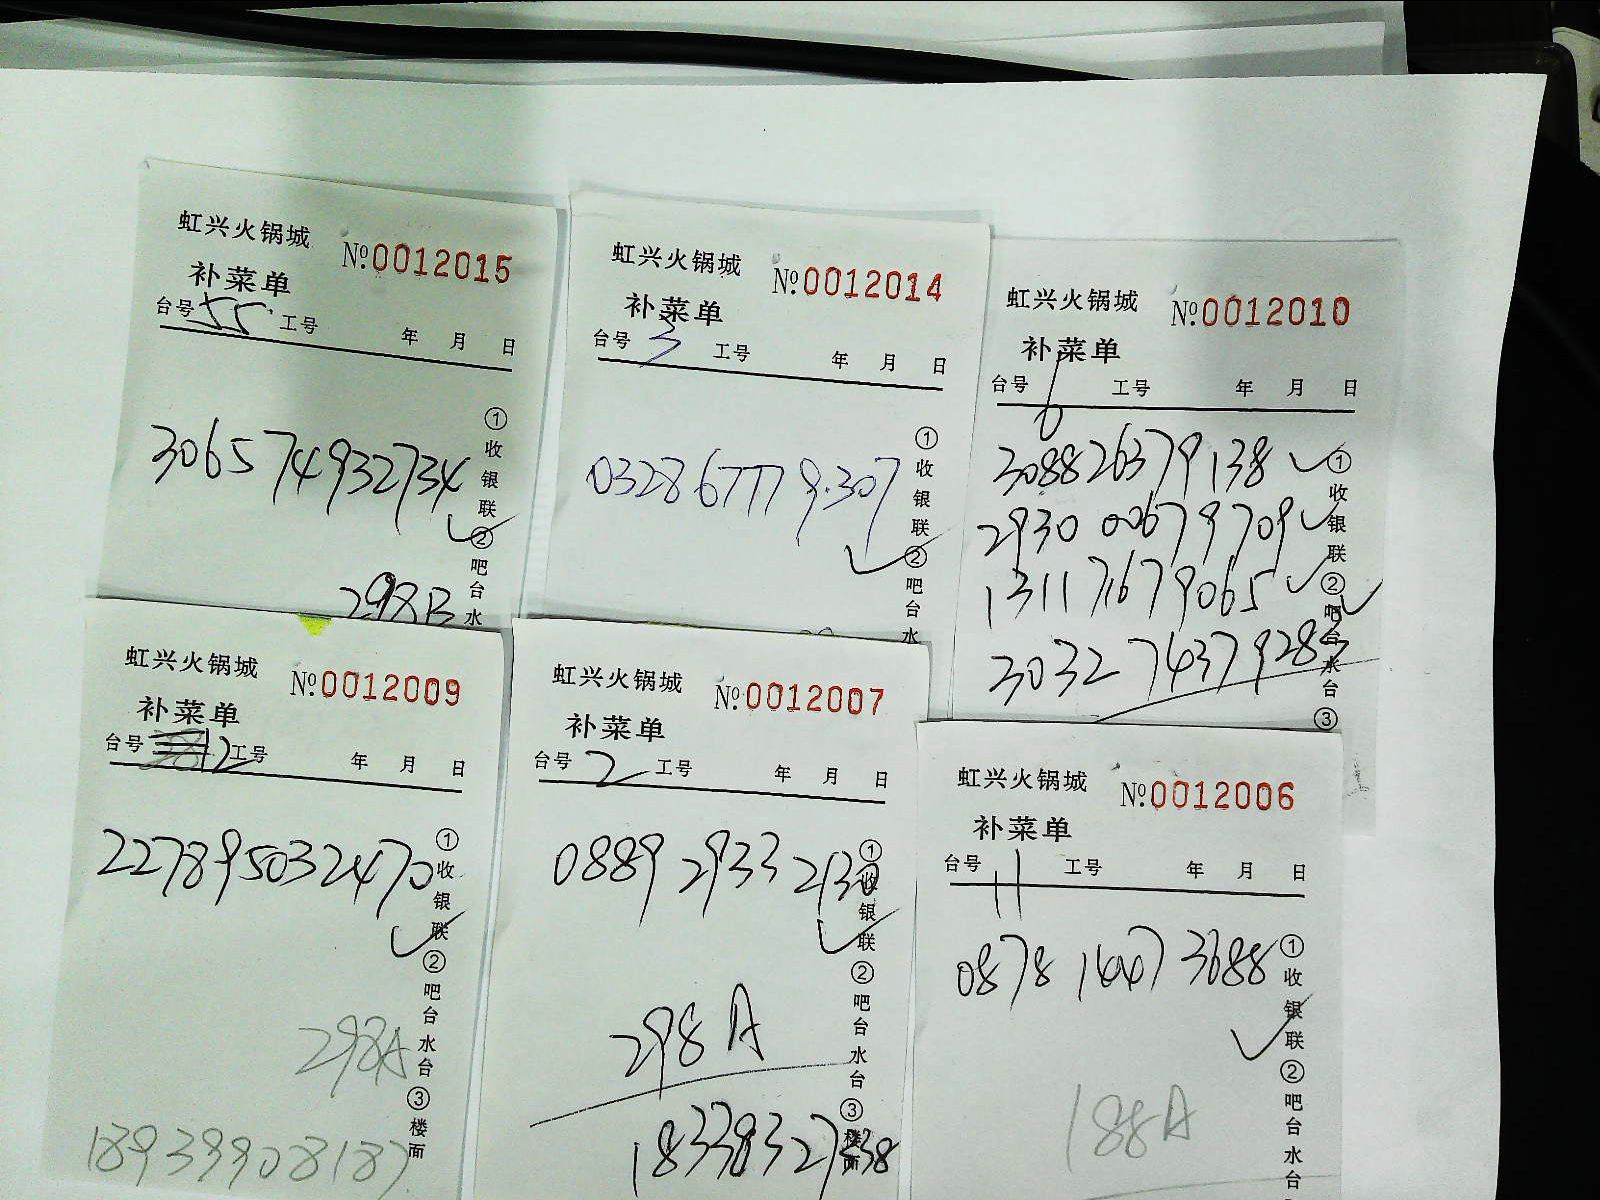 虹兴火锅城 №0012015
补菜单
台号 55 工号 年 月 日
306574932734
298B
①收银联②吧台水
虹兴火锅城 №0012014
补菜单
台号 3 工号 年 月 日
032867779307
①收银联②吧台水
虹兴火锅城 №0012010
补菜单
台号 6 工号 年 月 日
308826379138
2930 00679709
131171679065
3032 74379283
①收银联②吧台水台③
虹兴火锅城 №0012009
补菜单
台号 12 工号 年 月 日
227895032470
298A
18939908187
①收银联②吧台水台③楼面
虹兴火锅城 №0012007
补菜单
台号 2 工号 年 月 日
0889 2933 2130
298A
①收银联②吧台水台③楼面
虹兴火锅城 №0012006
补菜单
台号 11 工号 年 月 日
0878 1447 3688
188A
①收银联②吧台水台